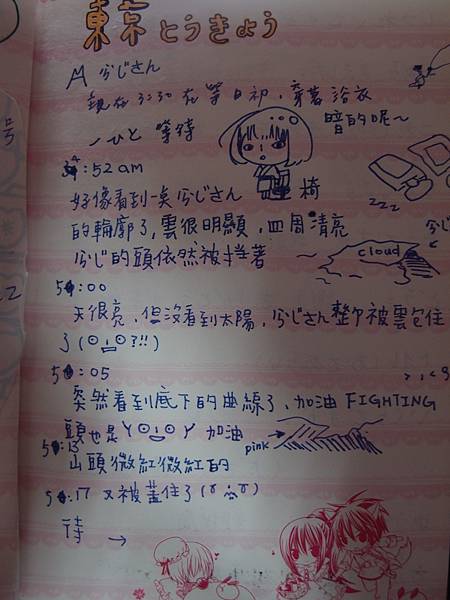 東京 とうきょう
ふじさん
現在3:30在等日初,穿著浴衣
ひと 等待
暗的呢~
椅
zzz
4:52 am
好像看到一奌ふじさん
的輪廓了,雲很明顯,四周清亮
ふじ的頭依然被擋著
ふじ
cloud
5:00
天很亮,但沒看到太陽,ふじさん整个被雲包住
了(⊙_⊙?!!)
5:05
突然看到底下的曲線了、加油 FIGHTING
頭也是 加油
pink
5:13
山頭微紅微紅的
5:17 又被蓋住了
待 →